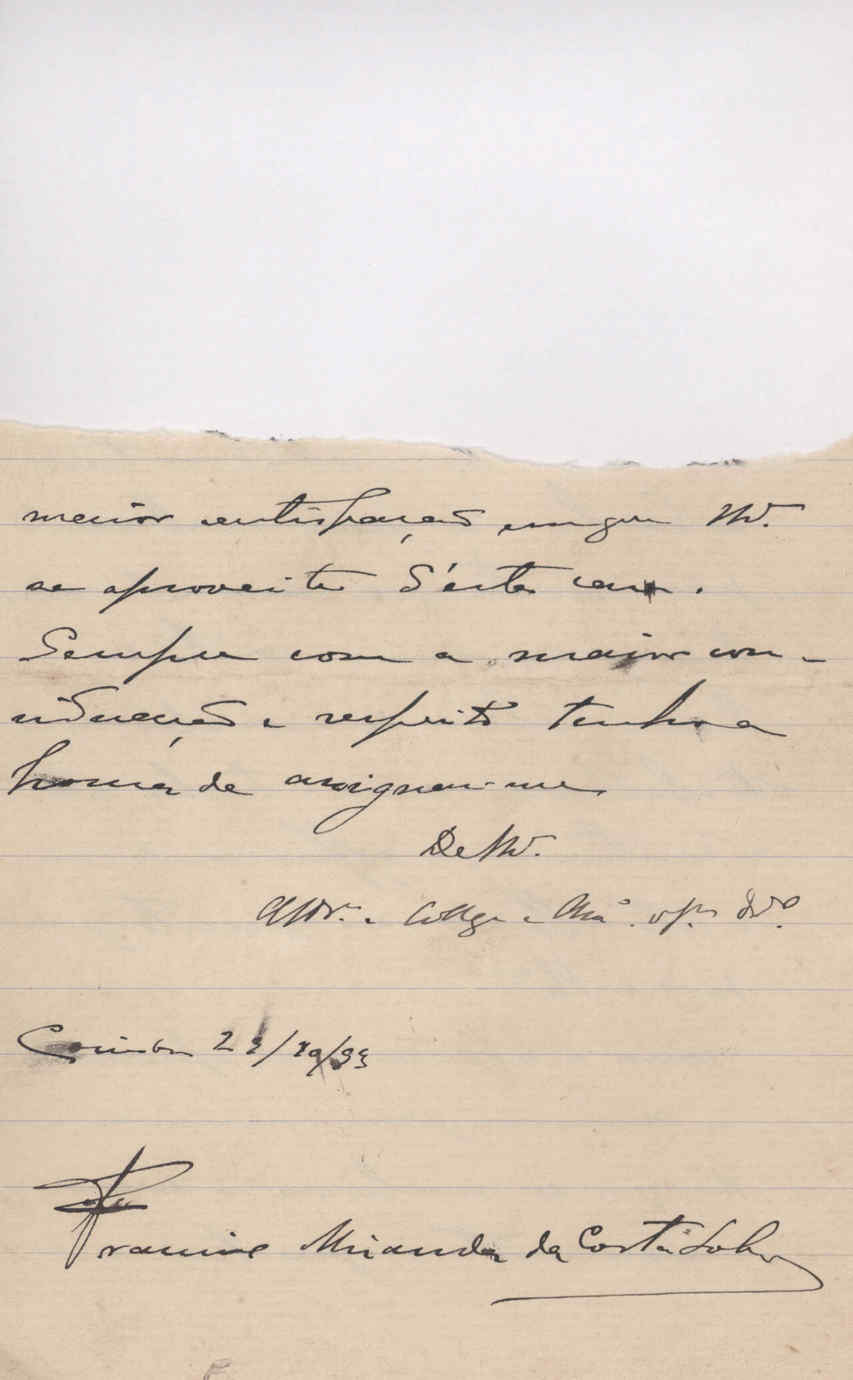 maior satisfação em que V.
se aproveite d'esta casa.
Sempre com a maior con-
sideração e respeito tenho a
honra de assignar-me
De V.
Coimbra 23/10/93
Francisco Miranda da Costa Lobo